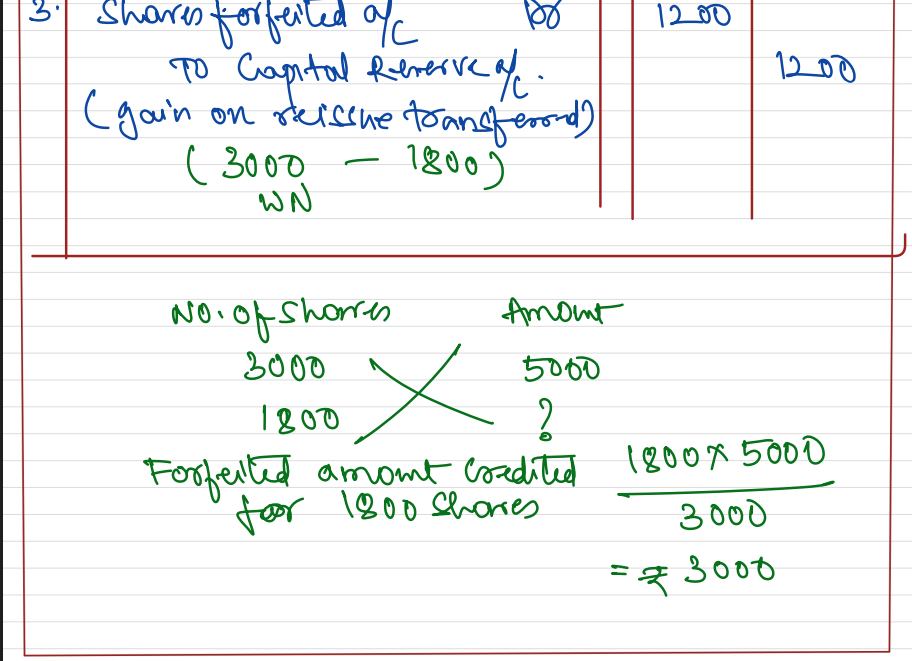 3. Shares forfeited a/c Dr 1200
To Capital Reserve a/c. 1200
(gain on reissue transferred)
(3000 – 1800)
WN
No. of Shares Amount
3000 5000
1800 ?
Forfeited amount credited
for 1800 Shares
1800 × 5000
3000
= ₹ 3000